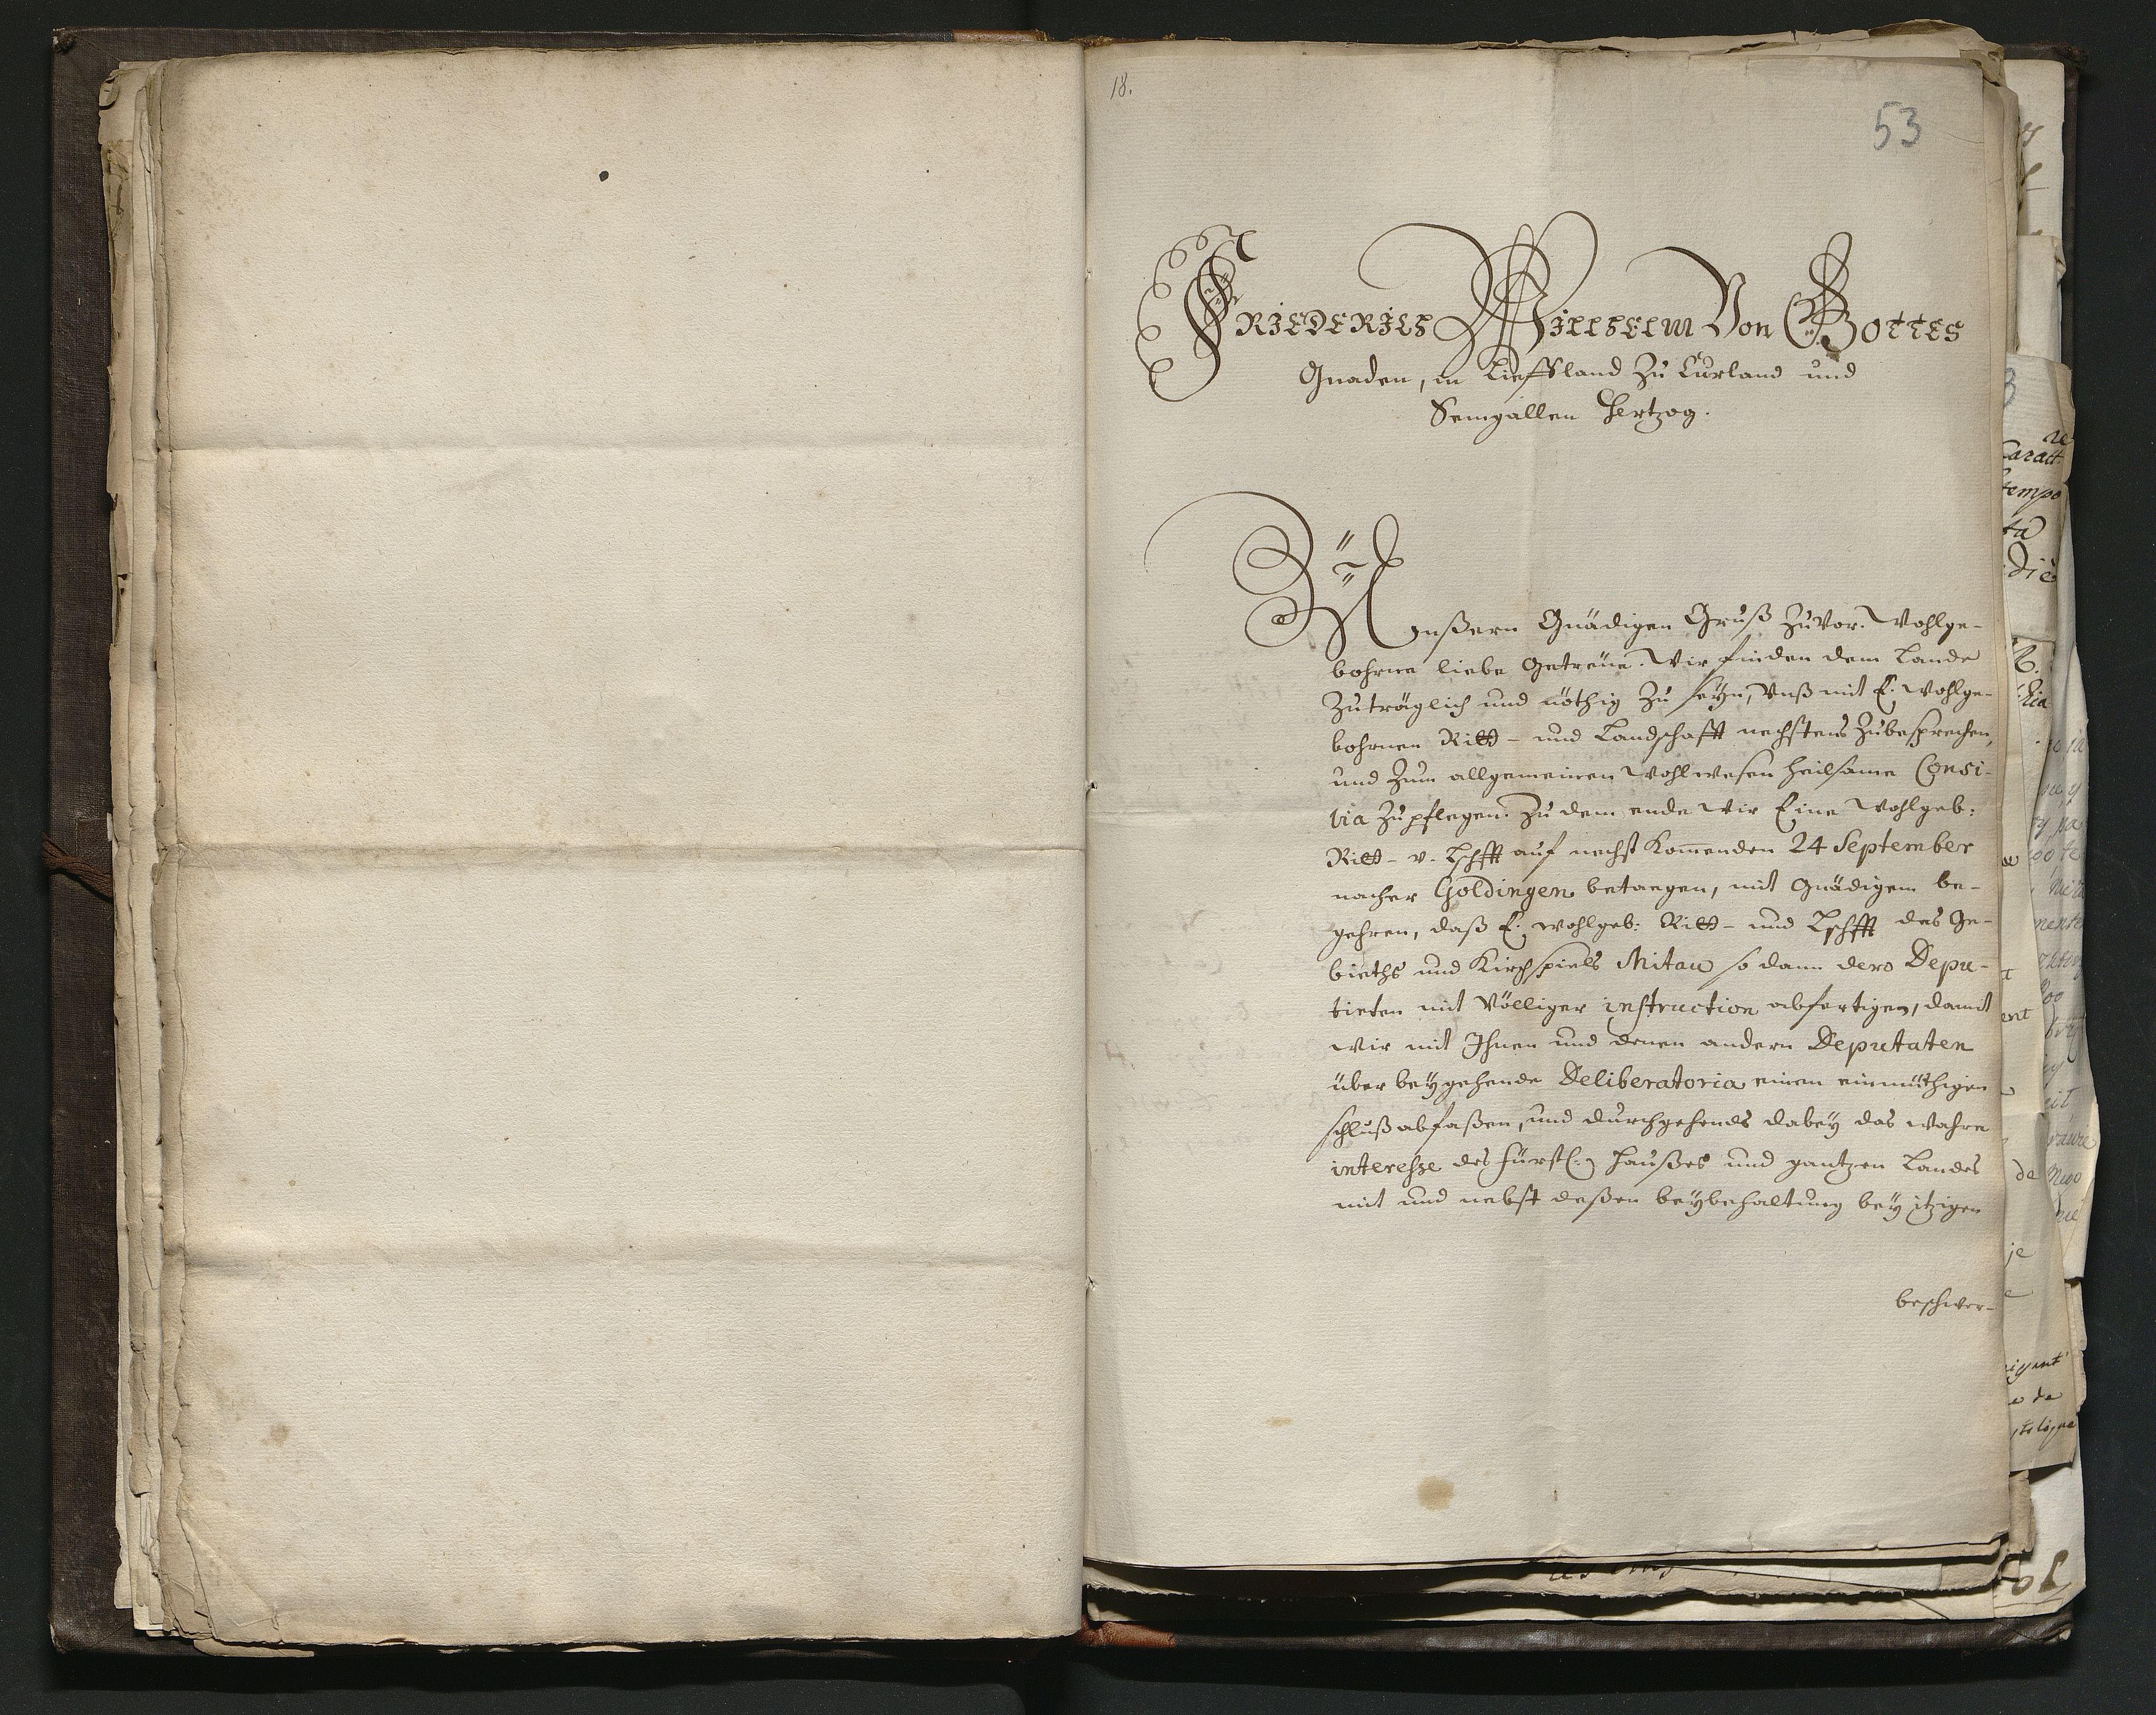 18.
53
Friederich Wilhelm Von Gottes
Gnaden, in Liefftland Zu Curland und
Semgallen Hertzog.
Unßern Gnädigen Gruß Zuvor. Wohlge-
bohrne liebe Getreüe. Wir finden dem Lande
Zuträglich und nöthig Zu seyn, Unß mit E. Wohlge-
bohrnen Ritt- und Landschafft nechstens Zubesprechen,
und Zum allgemeinen Wohlwesen heilsame Consi-
lia Zupflegen. Zu dem ende Wir Eine Wohlgeb:
Ritt- v. Lschfft auf nechst Kommenden 24 September
nacher Goldingen betaegen, mit Gnädigem be-
gehren, daß E. wohlgeb: Ritt- und Lschfft des Ge-
bieths und Kirchspiels Mitau so dann dero Depu-
tirten mit Völliger instruction abfertigen, damit
wir mit Ihnen und denen andern Deputaten
über beygehende Deliberatoria einen einmüthigen
schluß abfaßen, und durchgehends dabey das wahre
interesse des fürstl: Haußes und gantzen Landes
mit und nebst deßen beybehaltung bey itzigen
beschwer-